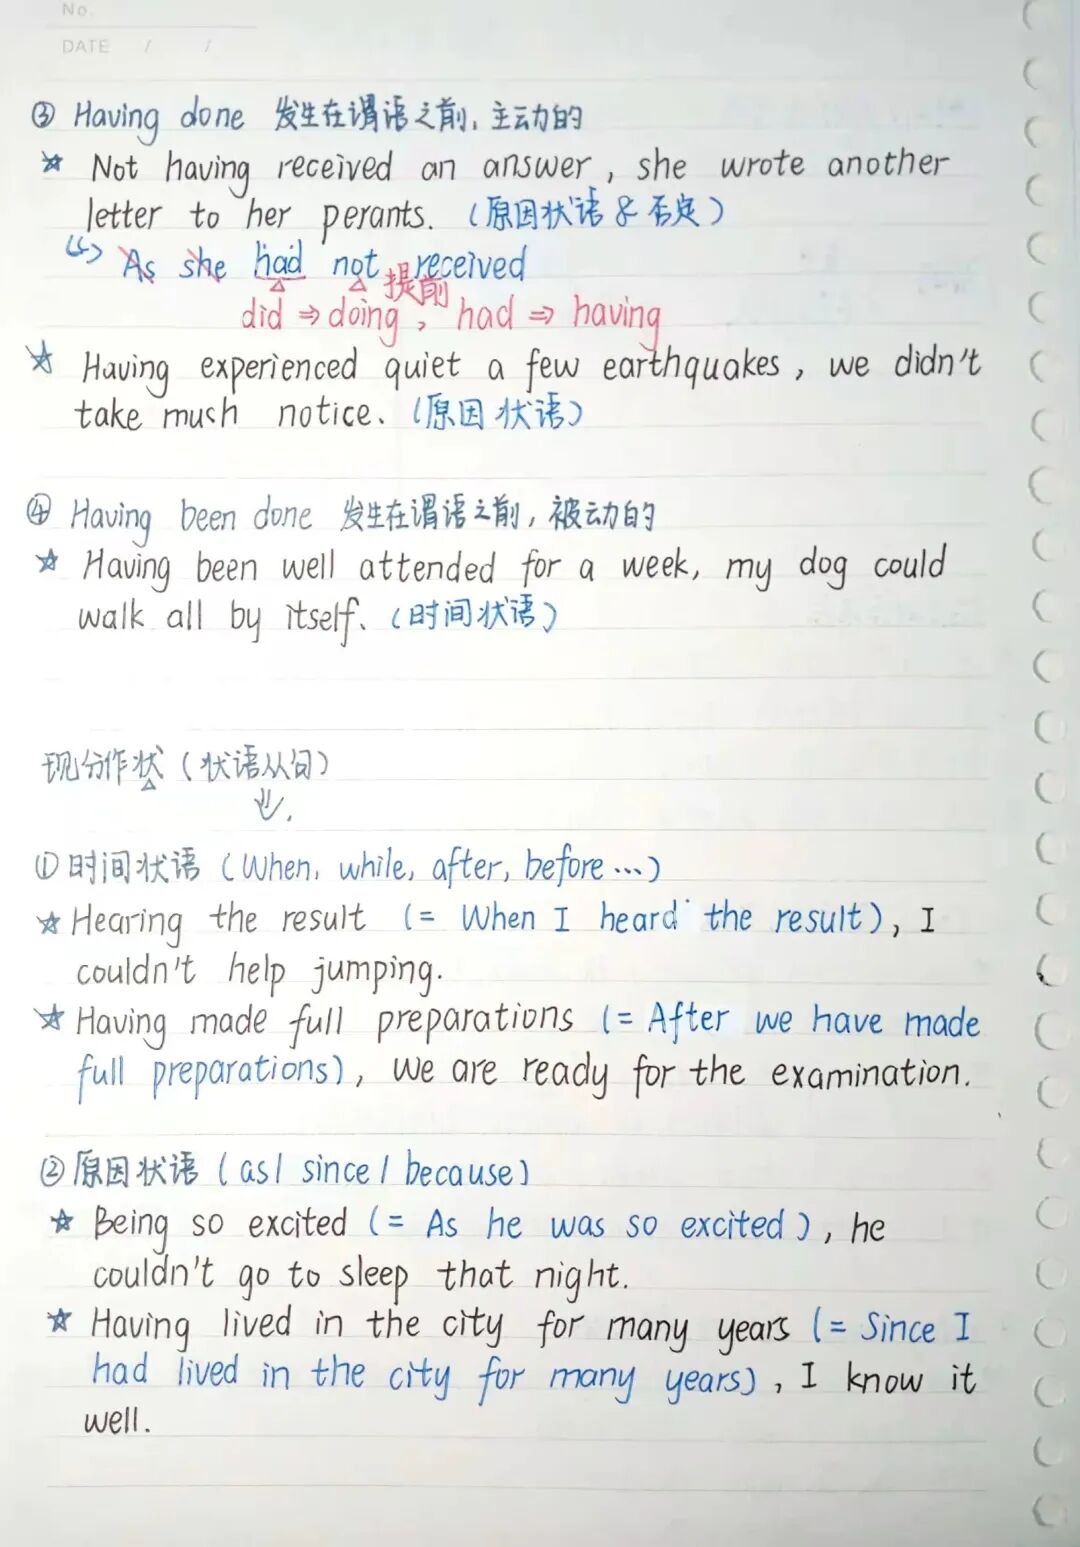 No.
DATE / /
③ Having done 发生在谓语之前, 主动的
☆ Not having received an answer, she wrote another
letter to her perants. (原因状语 & 否定)
↳ As she had not received
提前
did ⇒ doing, had ⇒ having
☆ Having experienced quiet a few earthquakes, we didn't
take much notice. (原因状语)
④ Having been done 发生在谓语之前, 被动的
☆ Having been well attended for a week, my dog could
walk all by itself. (时间状语)
现分作状 (状语从句)
①时间状语 (When, while, after, before …)
☆ Hearing the result (= When I heard the result), I
couldn't help jumping.
☆ Having made full preparations (= After we have made
full preparations), we are ready for the examination.
②原因状语 (as/ since / because)
☆ Being so excited (= As he was so excited), he
couldn't go to sleep that night.
☆ Having lived in the city for many years (= Since I
had lived in the city for many years), I know it
well.